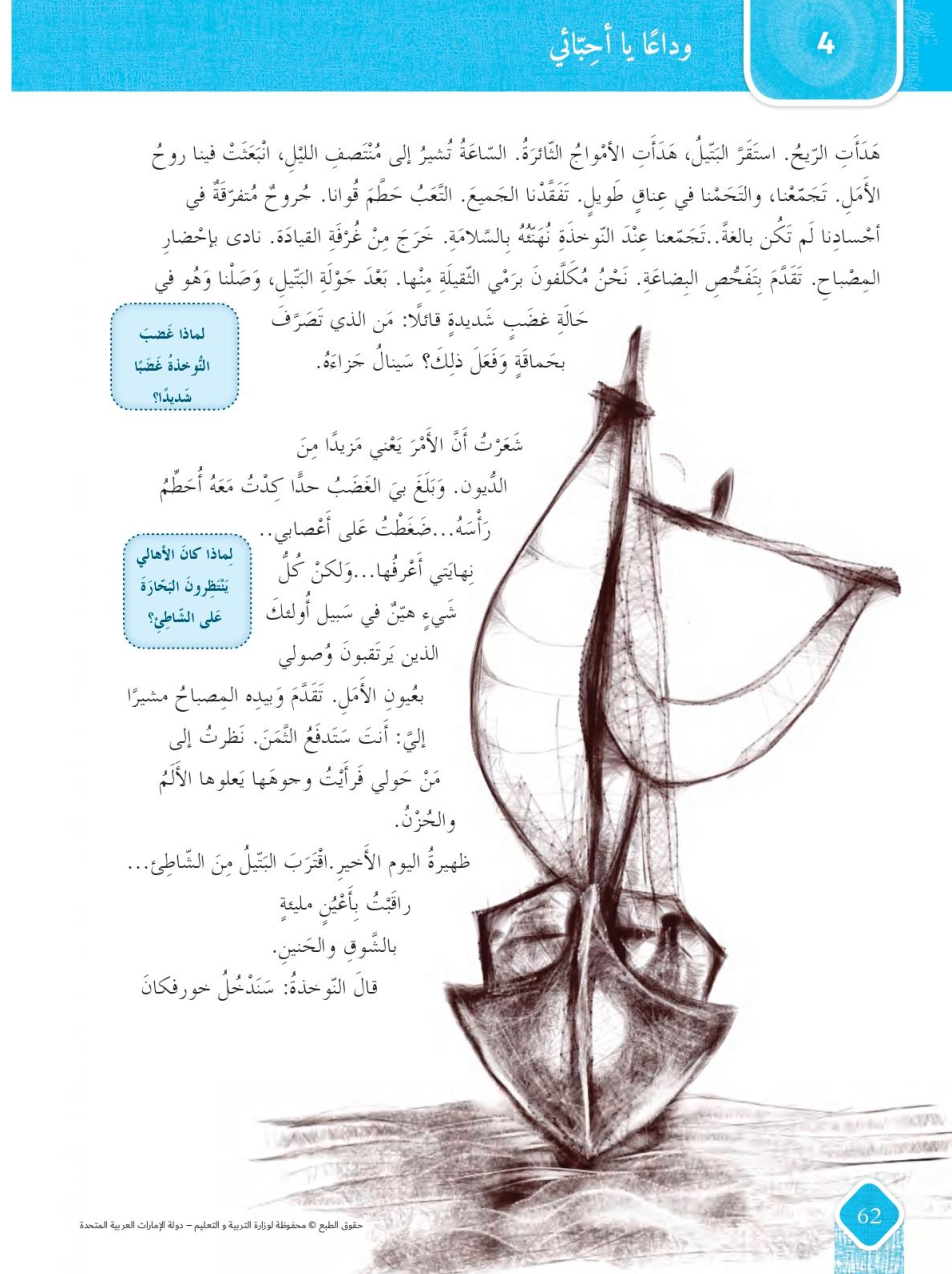 4
وداعًا يا أحِبّائي
هَدَأَتِ الرّيحُ. استَقَرَّ البَتّيلُ، هَدَأَتِ الأمْواجُ الثّائرَةُ. السّاعَةُ تُشيرُ إلى مُنْتَصفِ الليْلِ، انْبَعَثَتْ فينا روحُ
الأَمَلِ. تَجَمّعْنا، والتَحَمْنا في عِناقٍ طَويلٍ. تَفَقَّدْنا الجَميعَ. التَّعَبُ حَطَّمَ قُوانا. جُروحٌ مُتفرّقَةٌ في
أجْسادِنا لَم تَكُن بالغةً..تَجَمّعنا عِنْدَ النّوخذَةِ نُهَنّئُهُ بالسَّلامَةِ. خَرَجَ مِنْ غُرْفَةِ القيادَة. نادى بإحْضارِ
المِصْباحِ. تَقَدَّمَ بِتَفَحُّصِ البِضاعَةِ. نَحْنُ مُكَلَّفونَ برَمْيِ الثّقيلَةِ مِنْها. بَعْدَ جَوْلَةِ البَتّيلِ، وَصَلْنا وَهُو في
حَالَةِ غضَبٍ شَديدةٍ قائلًا: مَن الذي تَصَرَّفَ
بحَماقَةٍ وَفَعَلَ ذلِكَ؟ سَينالُ جَزاءَهُ.
لماذا غَضبَ
النُّوخذةُ غَضَبًا
شَديدًا؟
شَعَرْتُ أَنَّ الأَمْرَ يَعْني مَزيدًا مِنَ
الدُّيون. وَبَلَغَ بيَ الغَضَبُ حدًّا كِدْتُ مَعَهُ أُحَطِّمُ
رَأْسَهُ...ضَغَطْتُ عَلى أَعْصابي..
نِهايَتي أَعْرفُها...وَلكنْ كُلُّ
شَيءٍ هيّنٌ في سَبيل أُولئكَ
الذين يَرتَقبونَ وُصولي
لِماذا كانَ الأهالي
يَنْتَظِرونَ البَحّارَةَ
عَلى الشّاطِئِ؟
بعُيونِ الأَمَلِ. تَقَدَّمَ وَبيدِه المِصباحُ مشيرًا
إليَّ: أَنتَ سَتَدفَعُ الثَّمَنَ. نَظرتُ إلى
مَنْ حَولي فَرأَيْتُ وجوهَها يَعلوها الأَلَمُ
والحُزْنُ.
ظهيرةُ اليوم الأَخيرِ.اقْتَرَبَ البَتّيلُ مِنَ الشّاطِئ...
راقَبْتُ بِأَعْيُنٍ مليئةٍ
بالشَّوقِ والحَنينِ.
قالَ النّوخذةُ: سَنَدْخُلُ خورفكانَ
حقوق الطبع © محفوظة لوزارة التربية و التعليم – دولة الإمارات العربية المتحدة
62